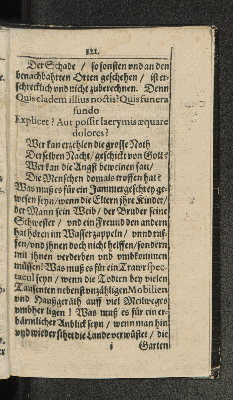 121.
Der Schade / so sonsten und an den
benachbahrten Orten geschehen / ist er-
schrecklich und nicht zuberechnen. Denn
Quis cladem illius noctis? Quis funera
fando
Explicet? Aut possit lacrymis æquare
dolores?
Wer kan erzehlen die grosse Noth
Derselben Nacht / geschickt von Gott?
Wer kan die Angst beweinen satt /
Die Menschen domals troffen hat?
Was muß es für ein Jammergeschrey ge-
wesen seyn / wenn die Eltern ihre Kinder /
der Mann sein Weib / der Bruder seine
Schwester / und ein Freund den andern
hat hören im Wasser zappeln / und ruf-
fen / und ihnen doch nicht helffen / sondern
mit ihnen verderben und umbkommen
müssen! Was muß es für ein Traur spec-
tacul seyn / wenn die Todten bey vielen
Tausenten nebenst unzähligen Mobilien
und Haußgeräth auff viel Meilweges
umbher ligen! Was muß es für ein er-
bärmlicher Anblick seyn / wenn man hin
und wieder sihet die Lande verwüstet / die
Garten